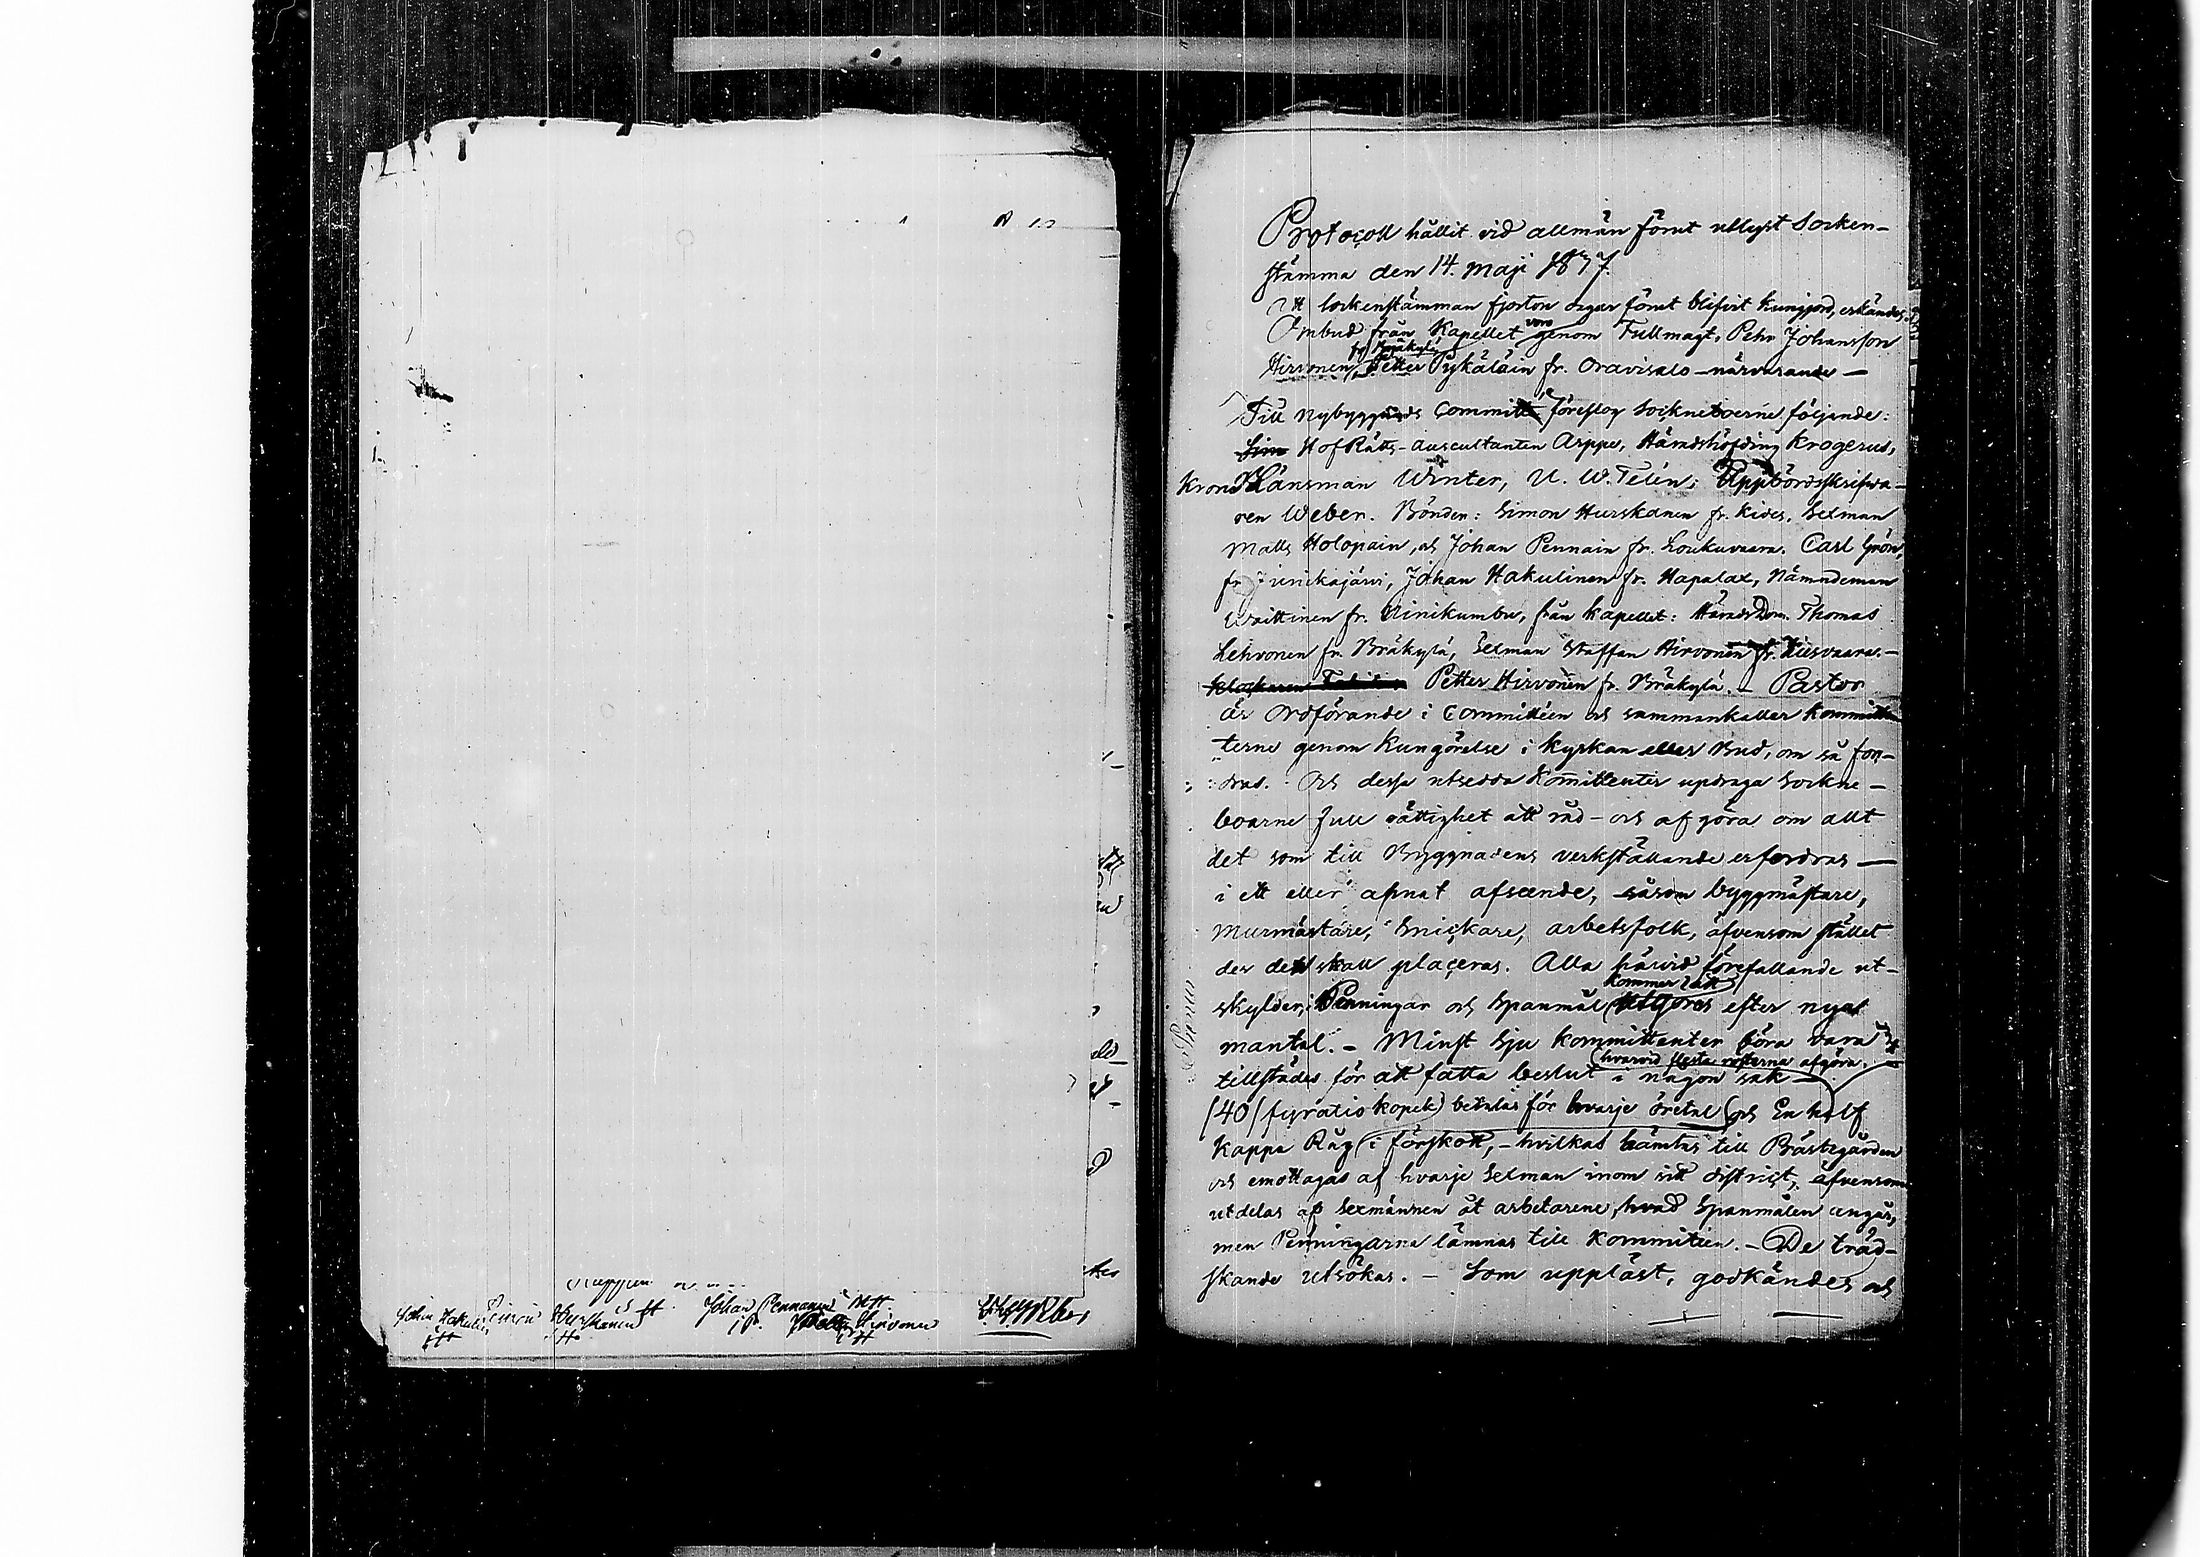 Johan Hakulin
Simon Hurskainen
Johan Pennanen
Petter Hirvonen
Weber
Protocoll hållit vid allmän förut utlyst Socken-
stämma den 14. Maji
Att sockenstämman fjorton dagar förut blifvit kungjord, erkändes.
Ombud från Kapellet voro genom Fullmagt, Pehr Johansson
Hirvonen fr. Bräkylä, Petter Pykäläin fr. Oravisalo närvarande —
Till Nybyggnads Committé, föreslog Sockneboerne följande:
HofRätts-Auscultanten Arppe, Häradshöfding Krogerus,
Krono Länsman Winter, U. W. Telén, Uppbördsskrifva-
ren Weber. Bönder: Simon Hurskanen fr. Kides, Sexman
Matts Holopain, och Johan Pennain fr. Loukuvaara. Carl Grön,
fr. Juurikajärvi, Johan Hakulinen fr. Hapalax, Nämndeman
Waittinen fr. Niinikumbu, från Kapellet: HäradsDom. Thomas
Lehvonen fr. Bräkylä, Sexman Staffan Hirvonen fr. Hiisvaara. —
Klockaren Petter Hirvonen fr. Bräkylä. — Pastor
är Ordförande i Committéen och sammankallar Kommitten
terne genom Kungörelse i kyrkan eller Bud, om så for-
dras. Och dessa utsedda Kommittenter updraga Sockne-
boarne full rättighet att råd- och afgöra om allt
det som till Byggnadens verkställande erfordras —
i ett eller annat afseende, såsom byggmästare,
Murmästare, Snickare, arbetsfolk, äfvensom stället
der det skall placeras. Alla härvid förefallande ut-
skylder, i Penningar och Spanmål kommer att utgöras efter nya
mantal. — Minst Sju kommittenter böra vara
tillstädes för att fatta beslut i någon sak — hvarvid flesta rösterna afgöra.
/40/ fyratio kopek) betalas för hvarje öretal och En half
Kappa Råg i förskott, — hvilkas hämtas till Prästegården
och emottagas af hvarje Sexman inom sitt district, äfvensom
utdelas af Sexmännen åt arbetarene, hvad Spanmålen angår,
men Penningarna lämnas till Kommitéen. — De tred-
skande utsökas. — Som uppläst, godkändes och